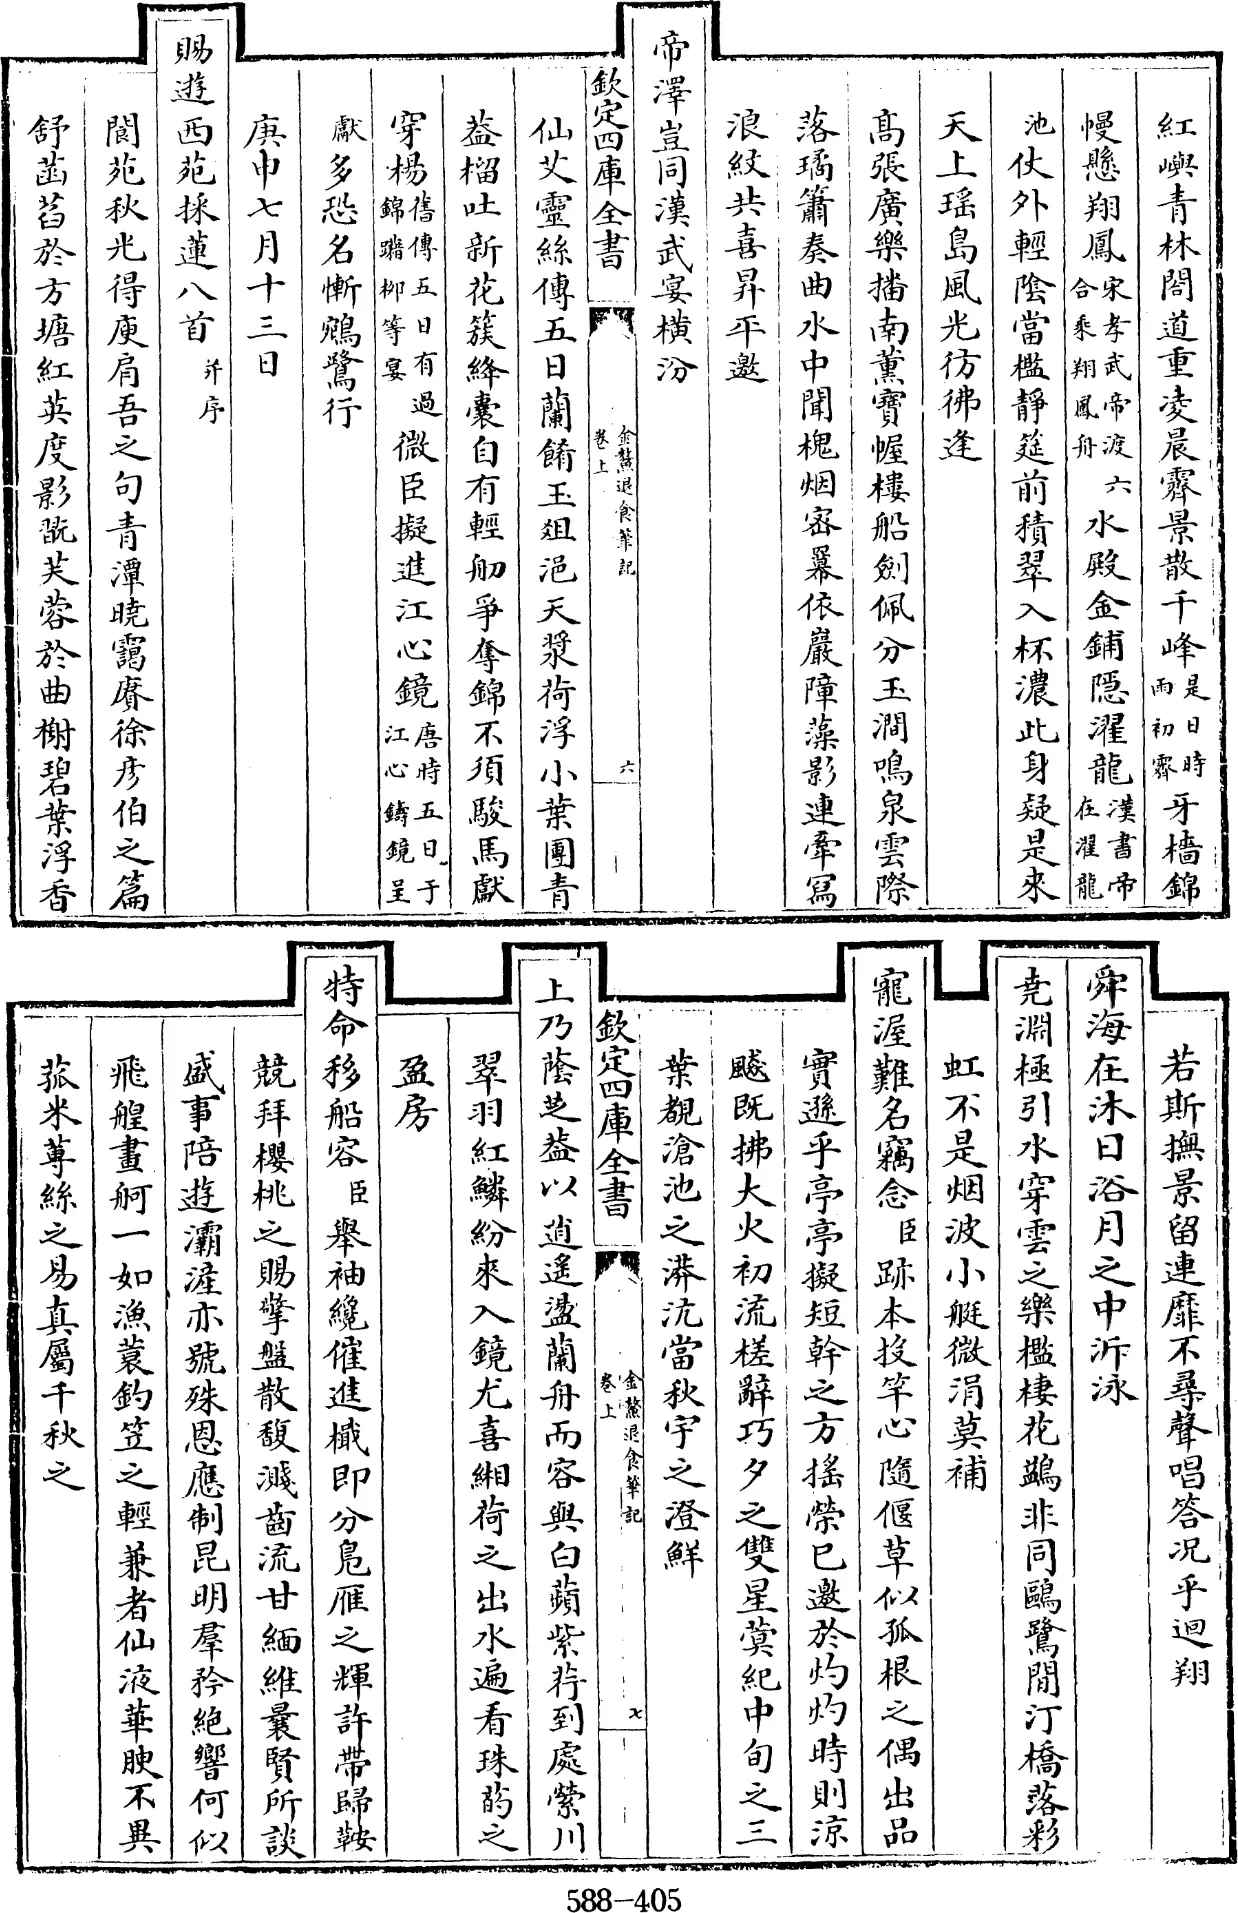 紅嶼青林閣道重凌晨霽景散千峰是日時雨初霽牙檣錦
幔懸翔鳳宋孝武帝渡六合乘翔鳳舟水殿金鋪隱濯龍漢書帝在濯龍
池仗外輕陰當檻靜筵前積翠入杯濃此身疑是來
天上瑤島風光彷彿逢
高張廣樂播南薰寶幄樓船劍佩分玉澗鳴泉雲際
落璚簫奏曲水中聞槐烟密羃依巖障藻影連牽寫
浪紋共喜昇平邀
帝澤豈同漢武宴橫汾
欽定四庫全書
金鰲退食筆記
卷上
六
仙艾靈絲傳五日蘭餚玉俎浥天漿荷浮小葉團青
葢榴吐新花簇絳囊自有輕舠爭奪錦不須駿馬獻
穿楊舊傳五日有過錦躤柳等宴微臣擬進江心鏡唐時五日于江心鑄鏡呈
獻多恐名慚鵷鷺行
庚申七月十三日
賜遊西苑採蓮八首并序
閬苑秋光得庾肩吾之句青潭曉靄賡徐彥伯之篇
舒菡萏於方塘紅英度影翫芙蓉於曲榭碧葉浮香
若斯撫景留連靡不尋聲唱答况乎迴翔
舜海在沐日浴月之中泝泳
堯淵極引水穿雲之樂檻棲花鷁非同鷗鷺閒汀橋落彩
虹不是烟波小艇微涓莫補
寵渥難名竊念臣跡本投竿心隨偃草似孤根之偶出品
實遜乎亭亭擬短幹之方搖榮已邀於灼灼時則涼
飈既拂大火初流槎辭巧夕之雙星蓂紀中旬之三
葉覩滄池之漭沆當秋宇之澄鮮
欽定四庫全書
金鰲退食筆記
卷上
七
上乃蔭芝葢以逍遥盪蘭舟而容與白蘋紫荇到處縈川
翠羽紅鱗紛來入鏡尤喜緗荷之出水遍看珠菂之
盈房
特命移船容臣舉袖纔催進檝即分鳧雁之輝許帶歸鞍
競拜櫻桃之賜擎盤散馥濺齒流甘緬維曩賢所談
盛事陪遊灞滻亦號殊恩應制昆明羣矜絕響何似
飛艎畫舸一如漁蓑釣笠之輕兼者仙液華腴不異
菰米蓴絲之易真屬千秋之
588-405